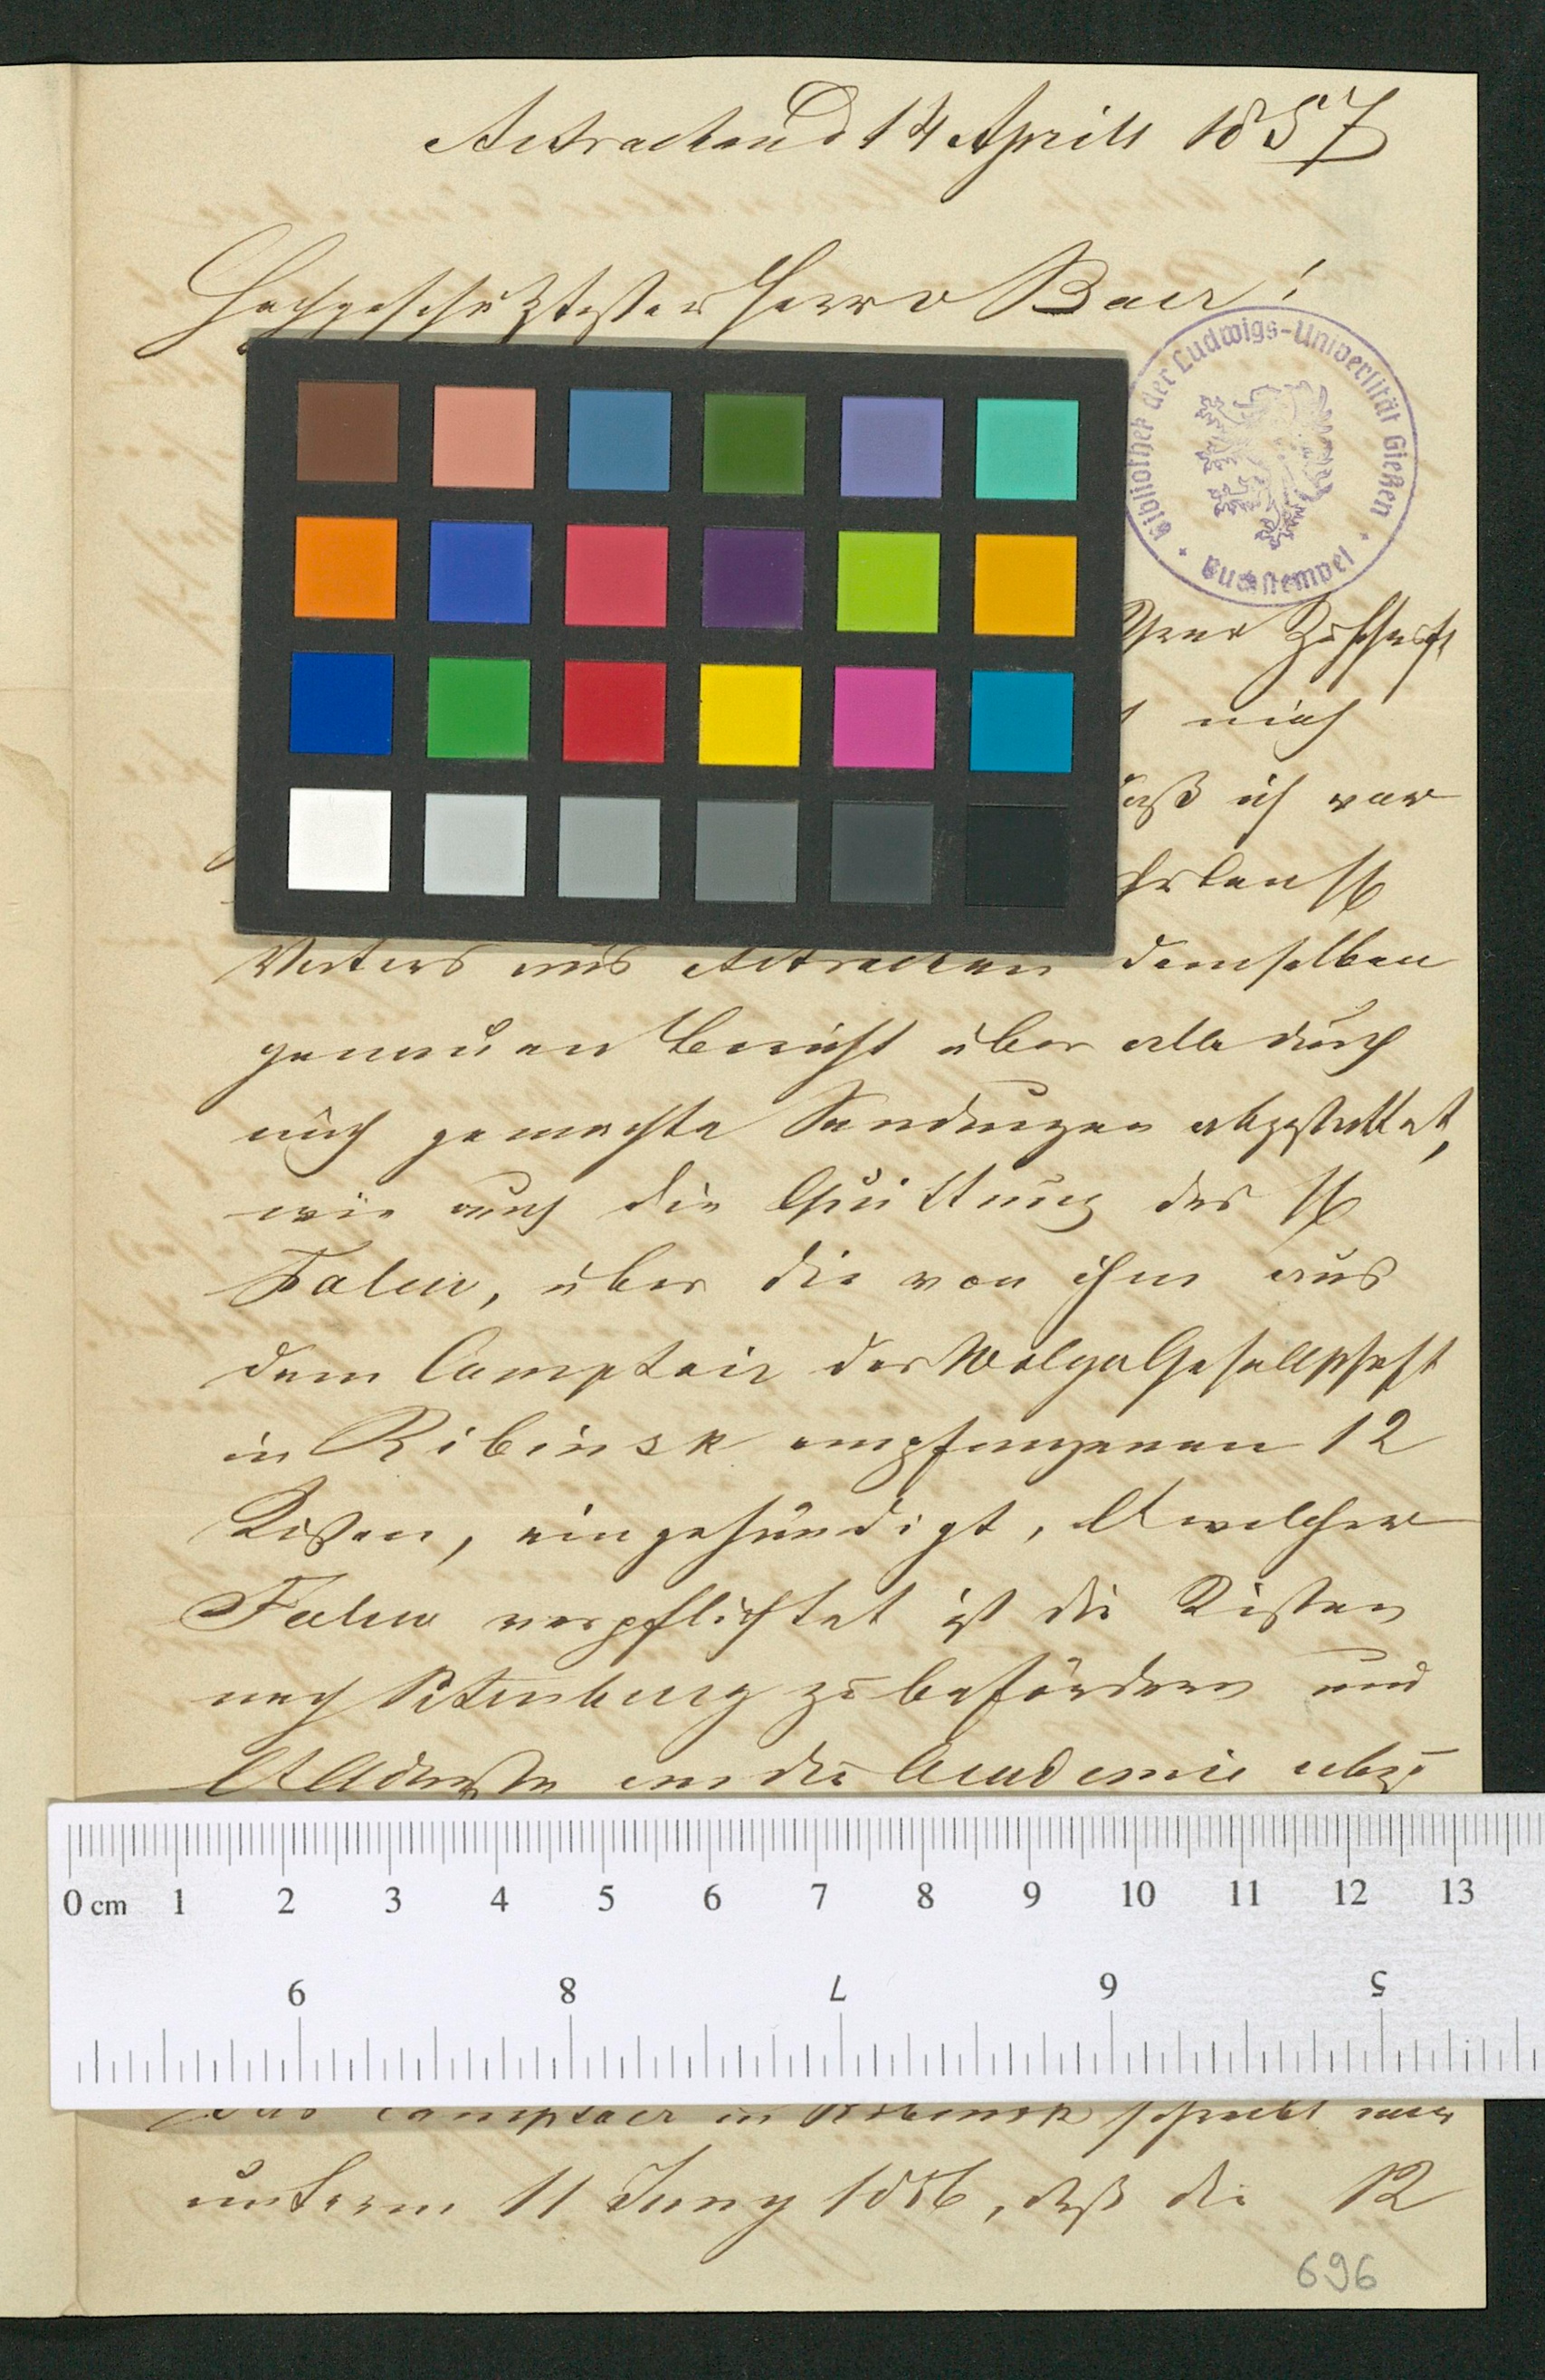 Astrachan d 14 Aprill 1857
Hochgeschätztester Herr v Baer!
Bibliothek der Ludwigs-Universität Gießen
Buchstempel
Ihrer Zuschrift
mich
daß ich vor
aus Astrachan demselben
genauen Bericht über alle durch
mich gemachte Sendungen abgestattet,
wie auch die Quittung des H
Falew, über die von ihm aus
dem Comptoir der Wolga Gesellschaft
in Ribinsk empfangenen 12
Kisten, eingehändigt, lt welcher
Falew verpflichtet ist die Kisten
nach Petersburg zu befördern und
lt Adresse an die Academie abzu
0 cm 1 2 3 4 5 6 7 8 9 10 11 12 13
9 8 7 6 5
Das Comptoir in Ribinsk schreibt mir
unterm 11 Juny 1856, daß die 12
696